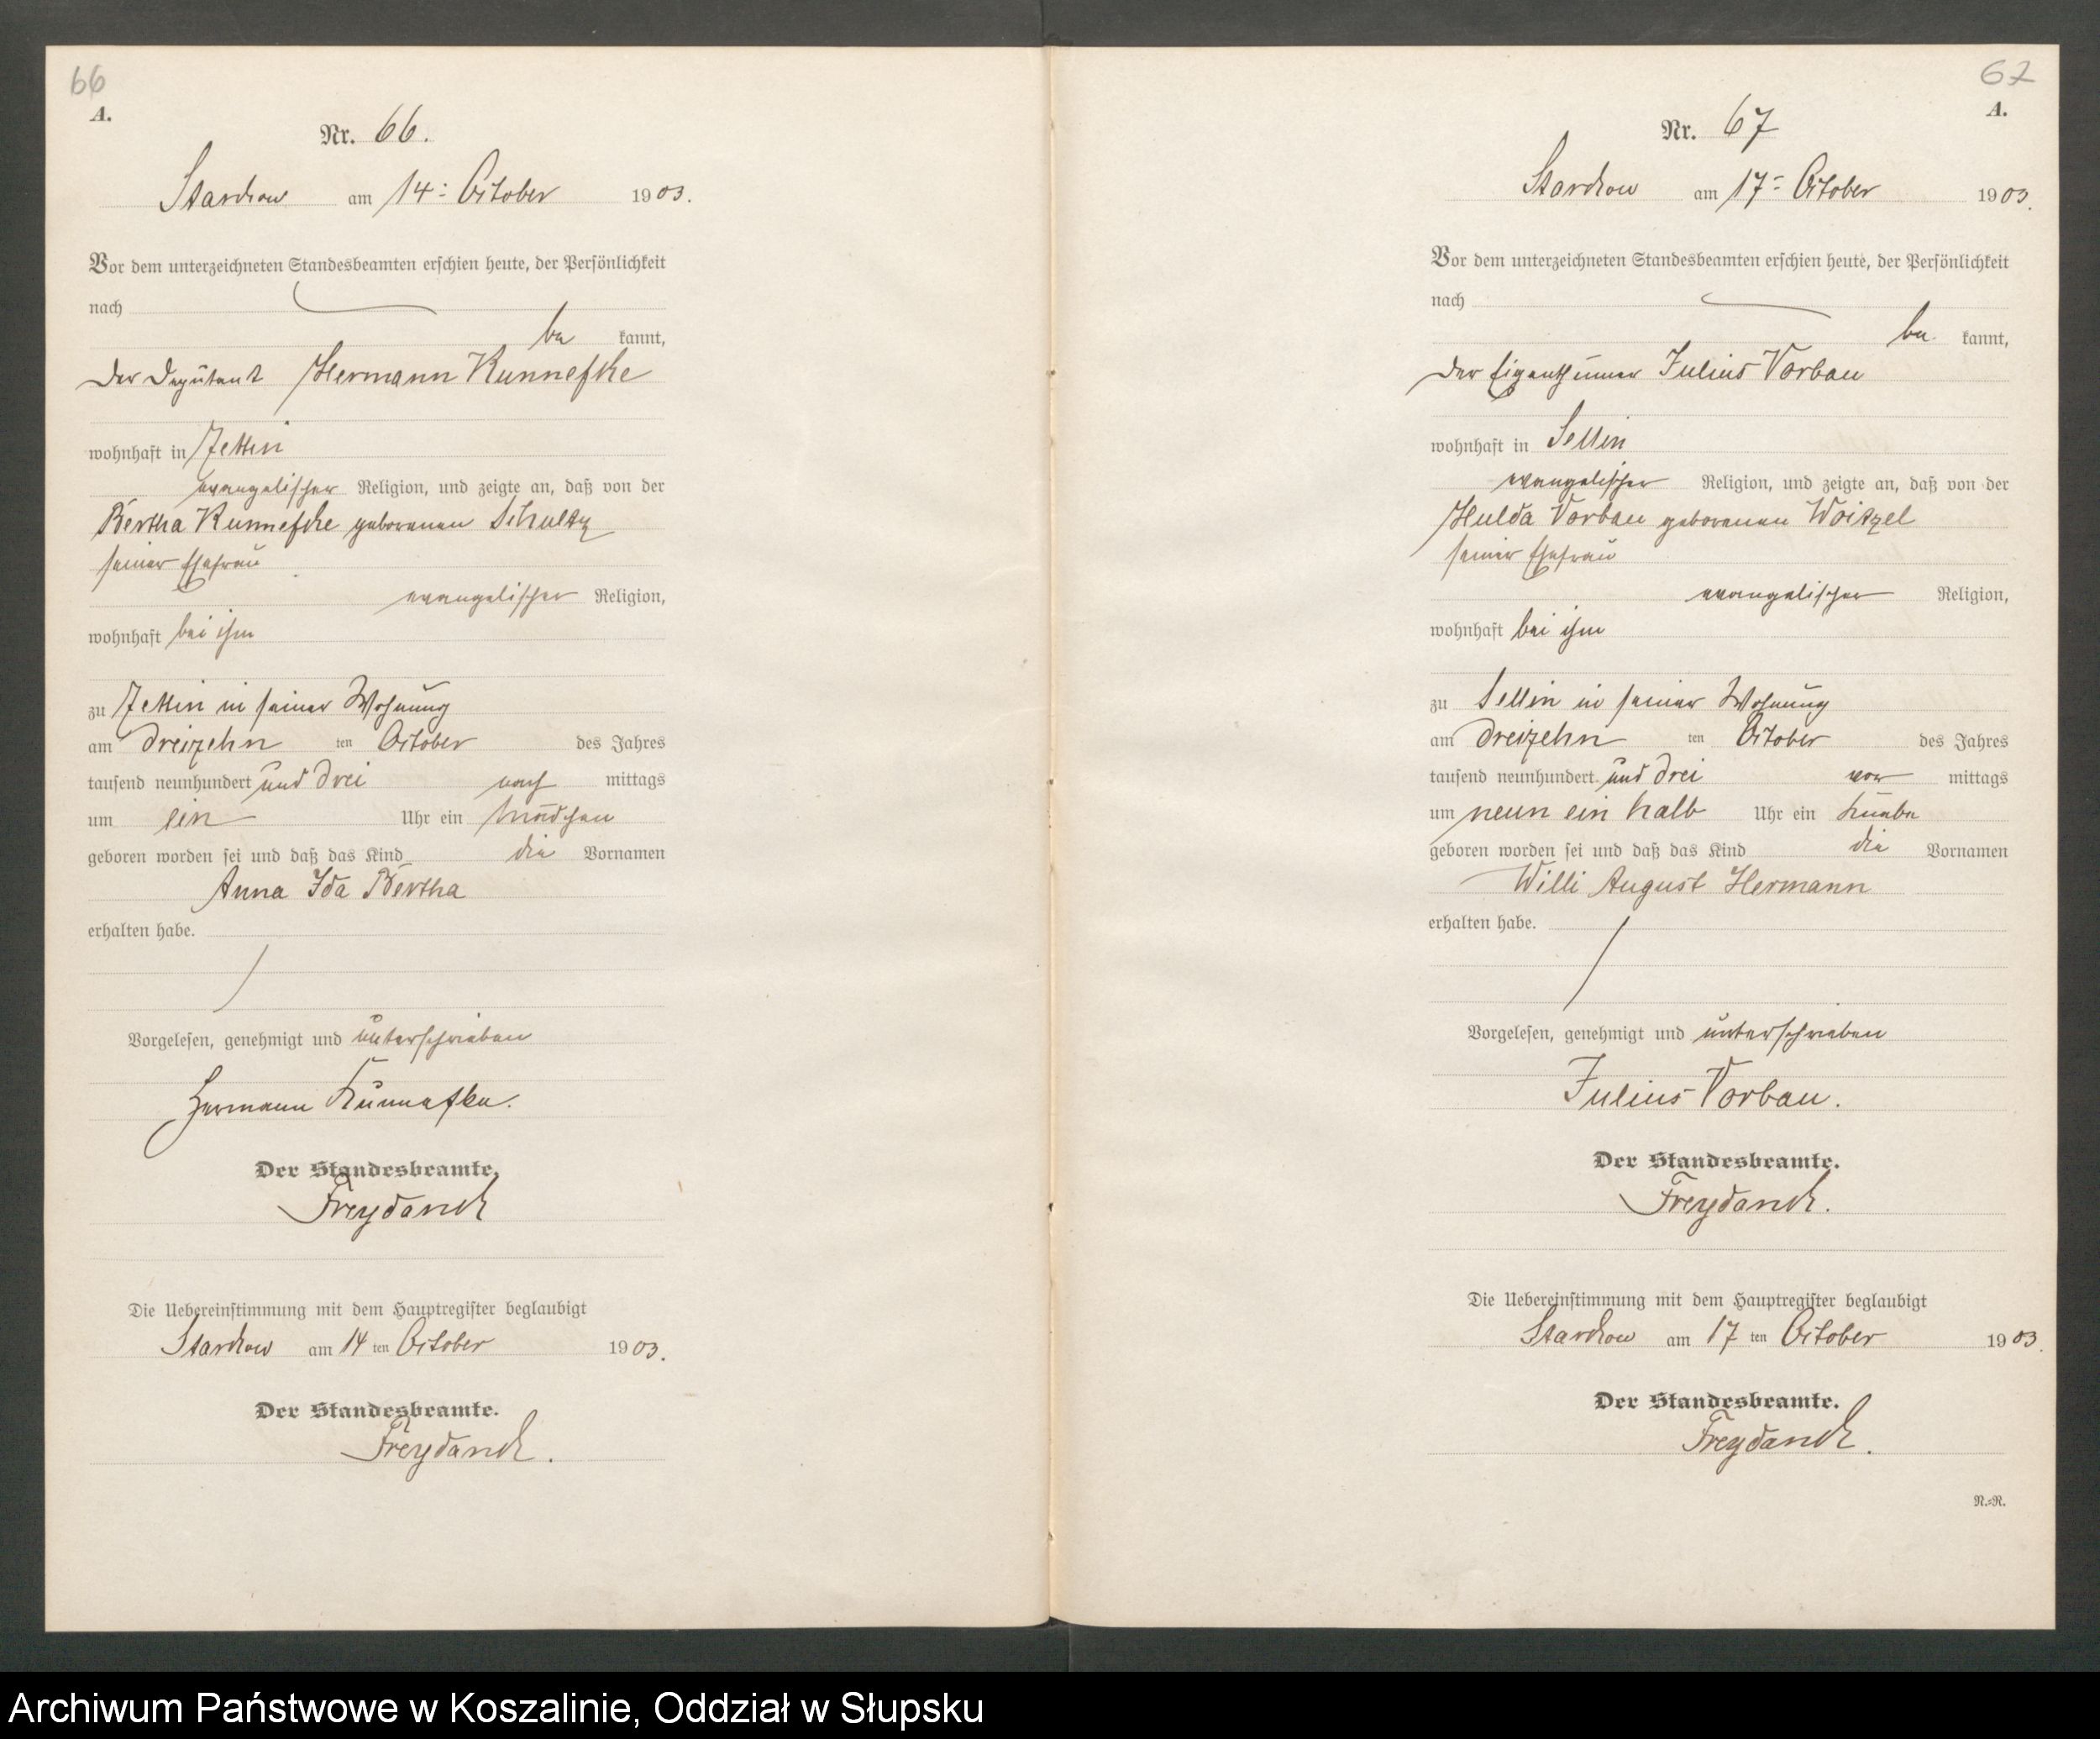 66
A.
Nr. 66.
Starckow am 14ᵗ October 1903.
Vor dem unterzeichneten Standesbeamten erschien heute, der Persönlichkeit
nach
be kannt,
der Deputant Hermann Kunnefke
wohnhaft in Zettin
evangelischer Religion, und zeigte an, daß von der
Bertha Kunnefke geborenen Schultz
seiner Ehefrau
evangelischer Religion,
wohnhaft bei ihm
zu Zettin in seiner Wohnung
am dreizehn ten October des Jahres
tausend neunhundert und drei nach mittags
um ein Uhr ein Mädchen
geboren worden sei und daß das Kind die Vornamen
Anna Ida Bertha
erhalten habe.
Vorgelesen, genehmigt und unterschrieben
Hermann Kunnefke.
Der Standesbeamte.
Freydanck
Die Uebereinstimmung mit dem Hauptregister beglaubigt
Starckow am 14 ten October 1903.
Der Standesbeamte.
Freydanck.
67
A.
Nr. 67
Starckow am 17ᵗ October 1903.
Vor dem unterzeichneten Standesbeamten erschien heute, der Persönlichkeit
nach
be kannt,
der Eigenthümer Julius Vorbau
wohnhaft in Sellin
evangelischer Religion, und zeigte an, daß von der
Hulda Vorbau geborenen Woitzel
seiner Ehefrau
evangelischer Religion,
wohnhaft bei ihm
zu Sellin in seiner Wohnung
am dreizehn ten October des Jahres
tausend neunhundert und drei vor mittags
um neun ein halb Uhr ein Knabe
geboren worden sei und daß das Kind die Vornamen
Willi August Hermann
erhalten habe.
Vorgelesen, genehmigt und unterschrieben
Julius Vorbau.
Der Standesbeamte.
Freydanck.
Die Uebereinstimmung mit dem Hauptregister beglaubigt
Starckow am 17 ten October 1903.
Der Standesbeamte.
Freydanck.
N.=R.
Archiwum Państwowe w Koszalinie, Oddział w Słupsku